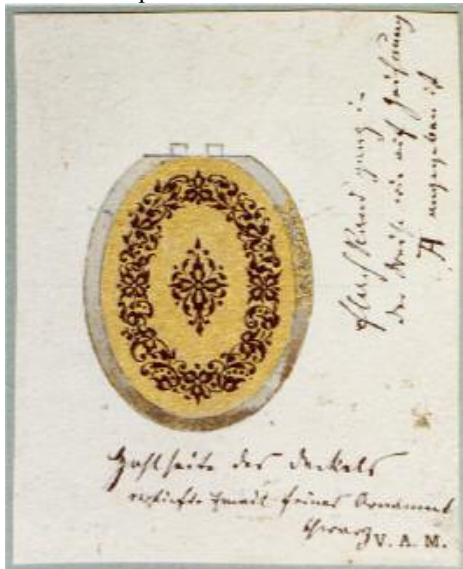 der Weise wie auf Zeichnung
A angegeben ist
Hohlseite des Deckels
vertiefte Email feines Ornament
schwarz
V. A. M.